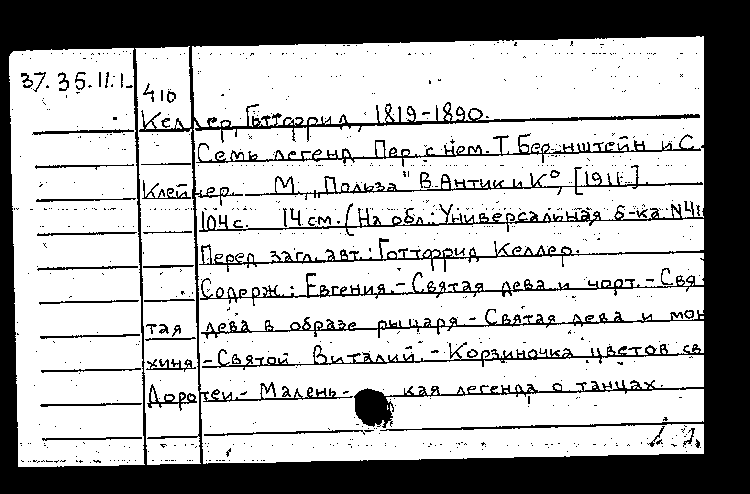 37.35.11.1
410
Келлер, Готтфрид, 1819-1890.
Семь легенд Пер. с нем. Т. Бернштейн и С.
Клейнер. М., "Польза" В. Антик и К°, [1911].
104 с. 14 см. (На обл.: Универсальная б-ка N 410
Перед загл. авт.: Готтфрид Келлер.
Содерж.: Евгения.-Святая дева и чорт.-Свя-
тая дева в образе рыцаря-Святая дева и мон
хиня-Святой Виталий.-Корзиночка цветов св
Доротеи.-Малень-кая легенда о танцах.